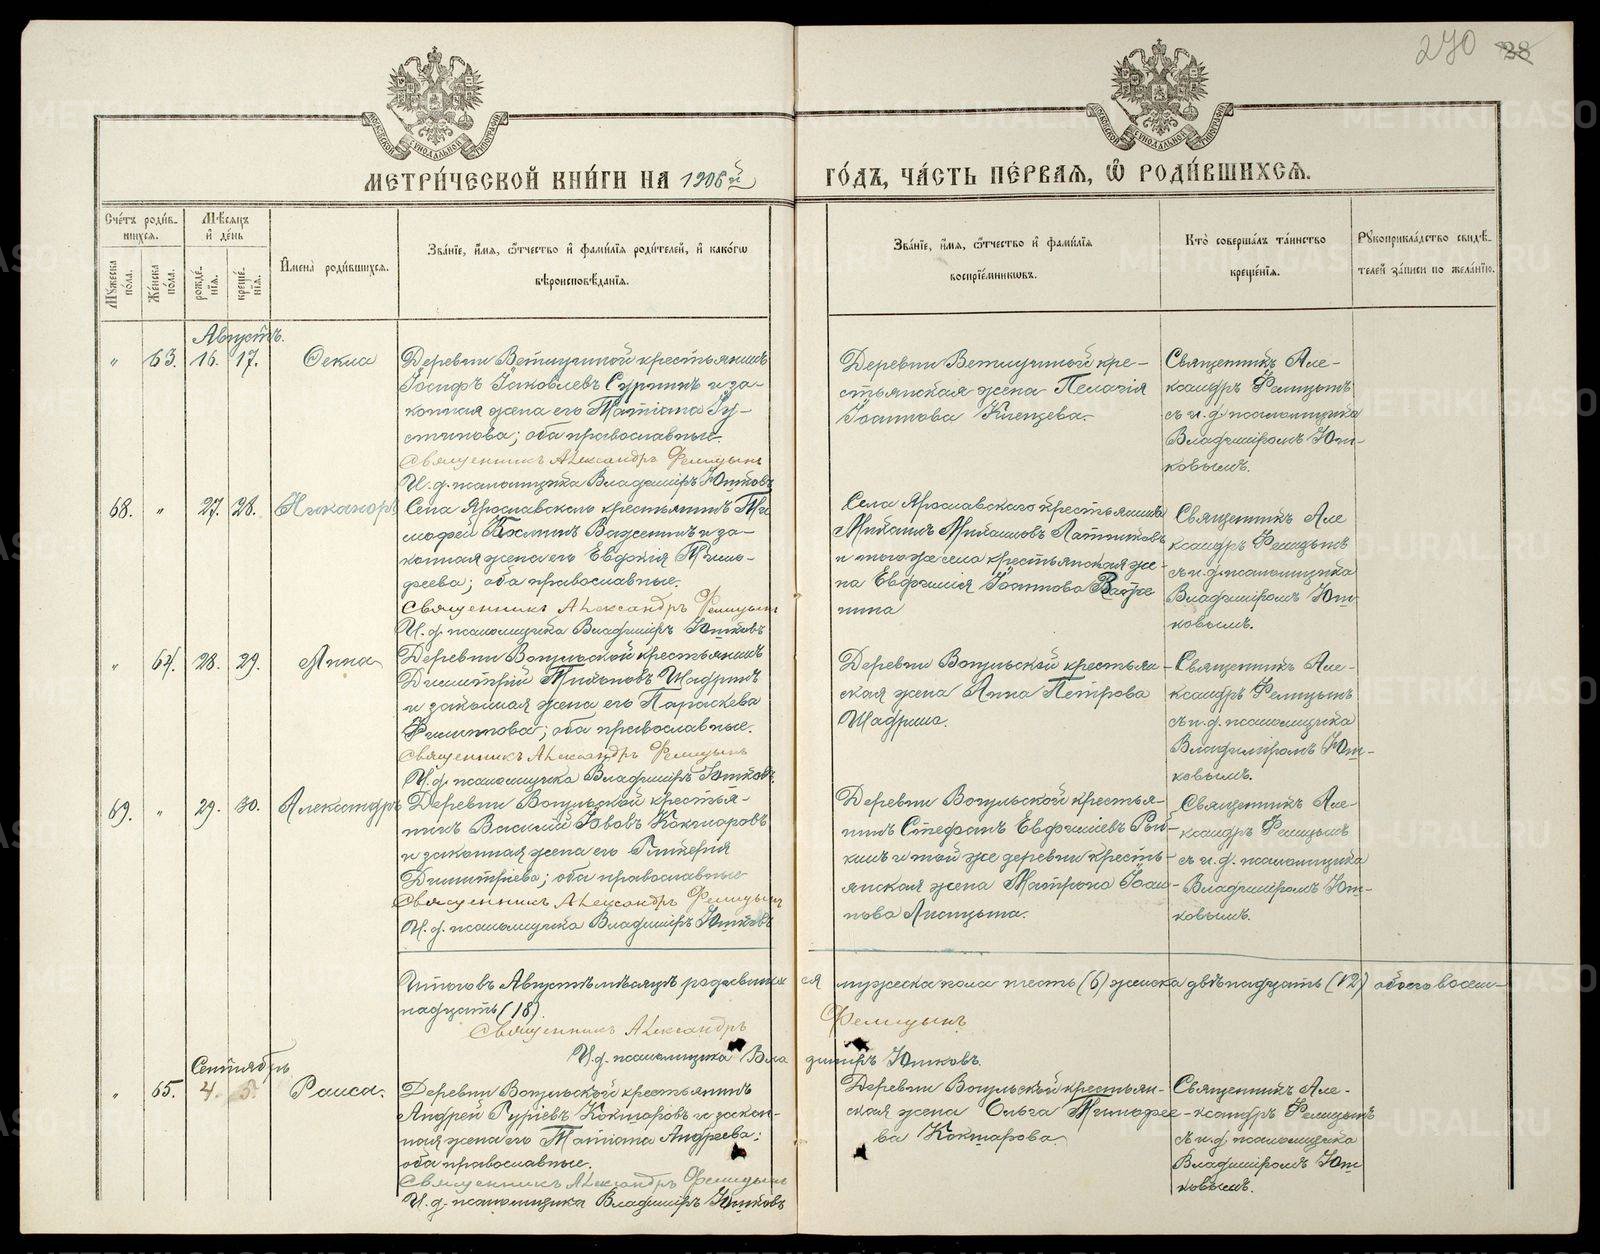 270 28
МЕТРИ́ЧЕСКОЙ КНИ́ГИ НА 1906й ГО́ДЪ, ЧА́СТЬ ПЕ́РВАЯ, Ѽ РОДИ́ВШИХСЯ.
Сче́тъ роди́в-
шихся.
Мужеска по́ла.
Же́нска по́ла.
Мѣсяцъ и де́нь
рожде́нїя.
креще́нїя.
Имена̀ роди́вшихся.
Зва́нїе, и́мя, ѻ́тчество и фами́лїя роди́телей, и како́гѡ
вѣроисповѣ́данїя.
Зва́нїе, и́мя, ѻ́тчество и фами́лїя
воспрїе́мникѡвъ.
Кто̀ соверша́лъ та́инство
креще́нїя.
Рукоприкла́дство свидѣ́-
телей за́писи по жела́нїю.
Августъ.
" 63. 16. 17. Ѳекла
Деревни Ветлугиной крестьянинъ
Іосифъ Іаковлевъ Сурнинъ и за-
конная жена его Татіана Іу-
стинова; оба православные.
Священникъ Александръ Фелицынъ
И. д. псаломщика Владиміръ Юшковъ
Деревни Ветлугиной кре-
стьянская жена Пелагія
Іоаннова Клепцева.
Священникъ Але-
ксандръ Фелицынъ
съ и. д. псаломщика
Владиміромъ Юш-
ковымъ.
68. " 27. 28. Никаноръ
Села Ярославскаго крестьянинъ Ти
мофей Косминъ Важенинъ и за-
конная жена его Евдокія Тимо-
феева; оба православные.
Священникъ Александръ Фелицынъ
И. д. псаломщика Владиміръ Юшковъ
Села Ярославскаго крестьянинъ
Михаилъ Михаиловъ Латниковъ
и того же села крестьянская же-
на Евфимія Іоаннова Важе
нина
Священникъ Але
ксандръ Фелицынъ
съ и. д. псаломщика
Владиміромъ Юш-
ковымъ.
" 64. 28. 29. Анна
Деревни Вогульской крестьянинъ
Димитрій Тихоновъ Шадринъ
и законная жена его Параскева
Филиппова; оба православные.
Священникъ Александръ Фелицынъ
И. д. псаломщика Владиміръ Юшковъ.
Деревни Вогульской крестьян-
ская жена Анна Петрова
Шадрина.
Священникъ Але-
ксандръ Фелицынъ
съ и. д. псаломщика
Владиміромъ Юш-
ковымъ.
69. " 29. 30. Александръ
Деревни Вогульской крестья-
нинъ Василій Іововъ Кокшаровъ
и законная жена его Гликерія
Димитріева; оба православные
Священникъ Александръ Фелицынъ
И. д. псаломщика Владиміръ Юшковъ
Деревни Вогульской крестья-
нинъ Стефанъ Евфиміевъ
и той же деревни кресть-
янская жена Матрона Іоан-
нова
Священникъ Але-
ксандръ Фелицынъ
съ и. д. псаломщика
Владиміромъ Юш-
ковымъ.
Итого въ Августѣ мѣсяцѣ родившихся мужеска пола шесть (6) женска двѣнадцать (12) обоего восем-
надцать (18).
Священникъ Александръ Фелицынъ
И. д. псаломщика Владиміръ Юшковъ.
Сентябрь
" 65. 4. 5. Раиса.
Деревни Вогульской крестьянинъ
Андрей Гуріевъ Кокшаровъ и закон-
ная жена его Татіана Андреева;
оба православные.
Священникъ Александръ Фелицынъ
И. д. псаломщика Владиміръ Юшковъ
Деревни Вогульской крестьян-
ская жена Ольга Тимофее-
ва Кокшарова
Священникъ Але-
ксандръ Фелицынъ
съ и. д. псаломщика
Владиміромъ Юш
ковымъ.